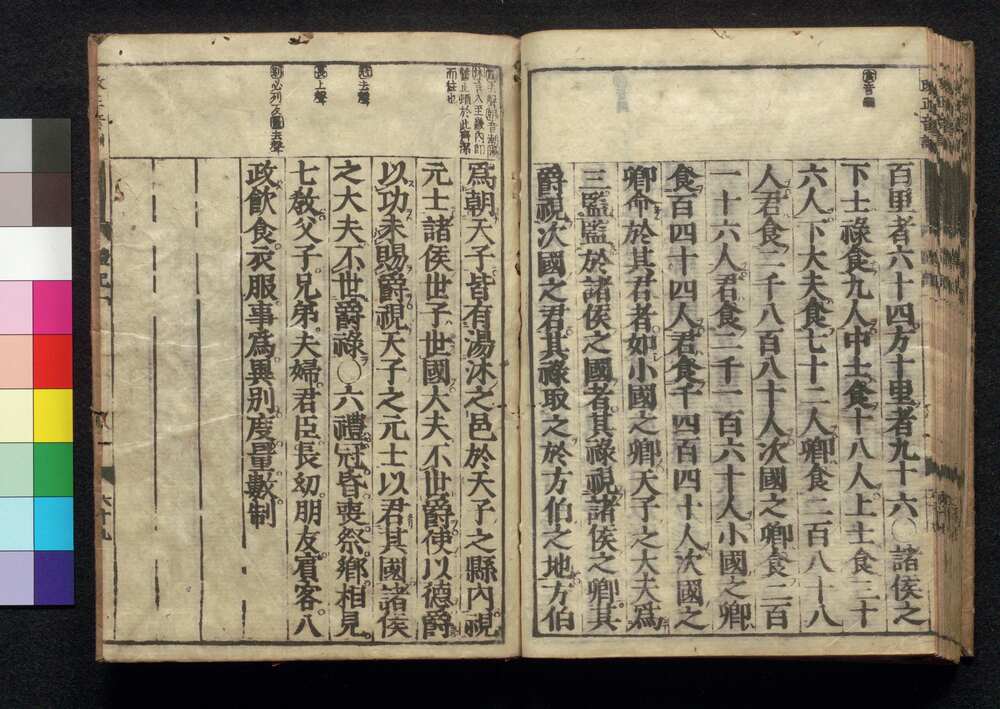 百里者六十四方十里者九十六〇諸侯之
下士祿食九人中士食十八人上士食三十
六人下大夫食七十二人卿食二百八十八
人君食二千八百八十人次國之卿食二百
一十六人君食二千一百六十人小國之卿
食百四十四人君食千四百四十人次國之
卿命於其君者如小國之卿天子之大夫爲
三監監於諸侯之國者其祿視諸侯之卿其
爵視次國之君其祿取之於方伯之地方伯
爲朝天子皆有湯沐之邑於天子之縣內視
元士諸侯世子世國大夫不世爵使以德爵
以功未賜爵視天子之元士以君其國諸侯
之大夫不世爵祿〇六禮冠昏喪祭鄉相見
七敎父子兄弟夫婦君臣長幼朋友賓客八
政飮食衣服事爲異別度量數制
食音嗣
冠去聲
長上聲
別必列反量去聲